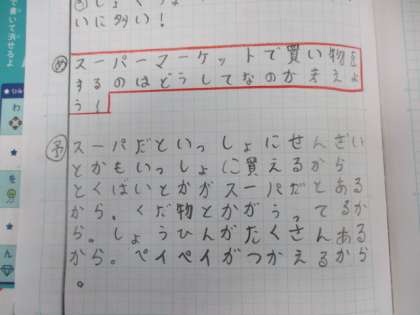 ③しょくりょ
いに多い!
め スーパーマーケットで買い物を
するのはどうしてなのか考えよ
う!
予 スーパだといっしょにせんざい
とかもいっしょに買えるから
とくばいとかがスーパだとある
から。くだ物とかがうってるか
ら。しょうひんがたくさんある
から。ペイペイがつかえるから
。
で書いて消せるよ
わ
を
ん